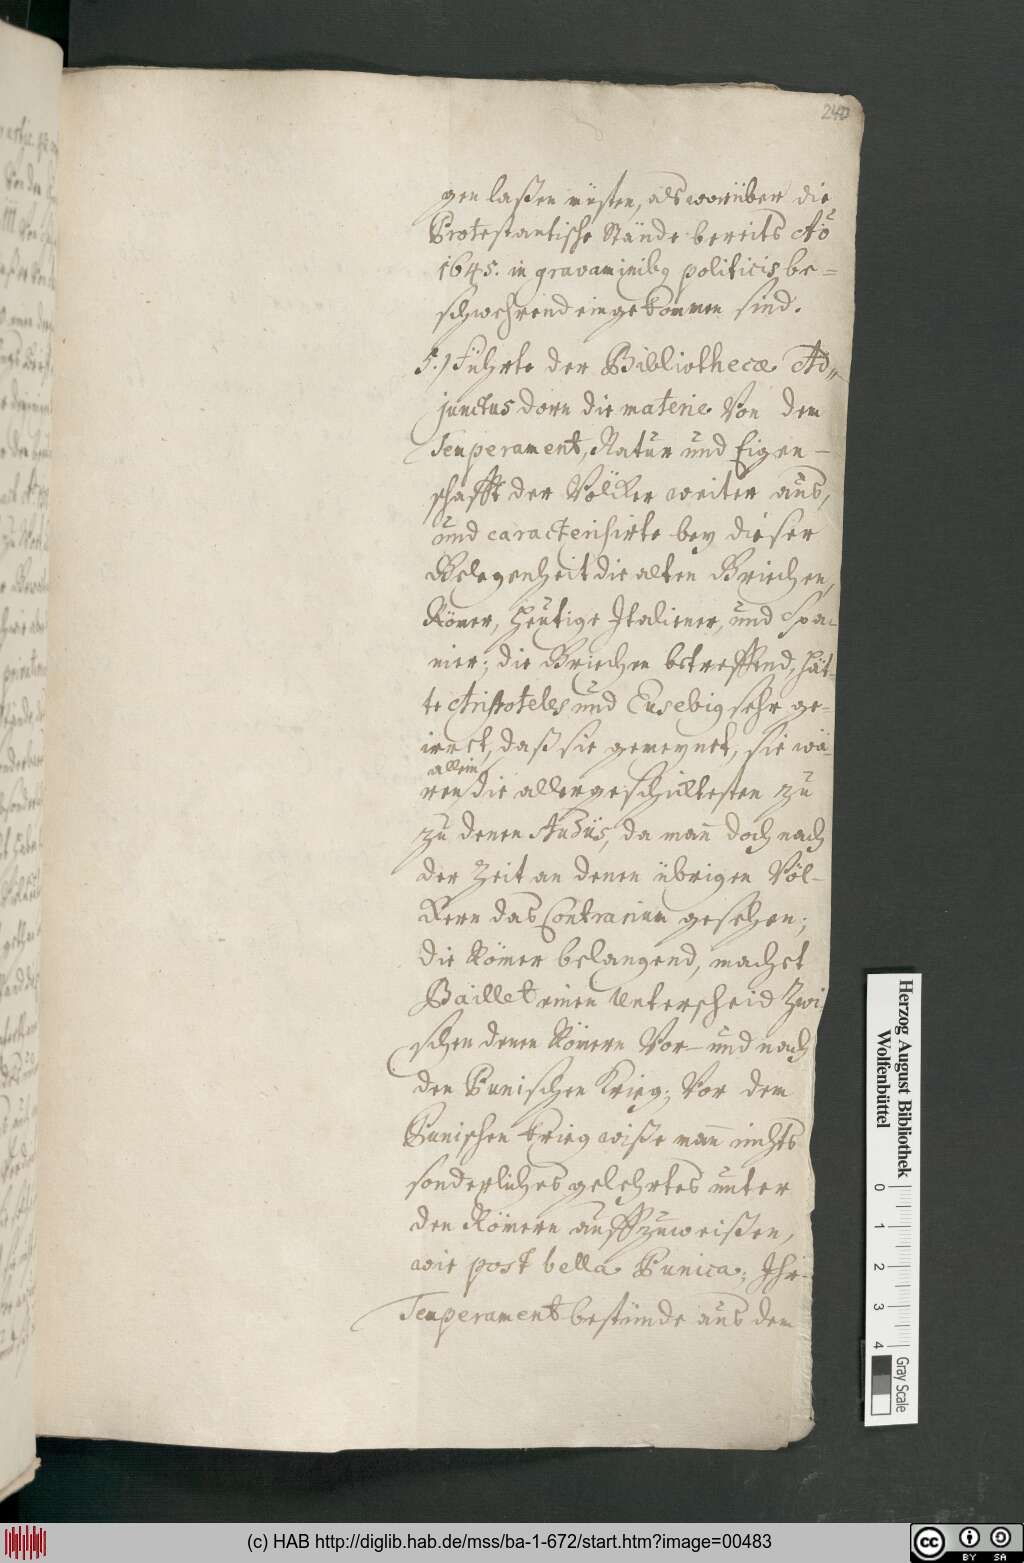 240
gen laßen müsten, als worüber die
Protestantische Stände bereits Aõ
1645. in gravaminibq politicis be-
schwehrend eingekommen sind.
5.) Führte der Bibliothecæ Ad-
junctus dorn die materie von dem
Temperament, Natur und Eigen-
schafft der Völcker weiter aus,
und caracterisirte bey dieser
Gelegenheit die alten Griechen,
Römer, heutige Italiener, und Spa-
nier; die Griechen betreffend, hät-
te Aristoteles und Eusebiq sehr ge-
irret, daß sie gemeynet, sie wä-
allein
ren die allergeschicktesten zu
zu denen Studiis, da man doch nach
der Zeit an denen übrigen Völ-
kern das Contrarium gesehen;
die Römer belangend, machet
Baillet einen Unterscheid zwi-
schen denen Römern Vor- und nach
den Punischen Krieg; Vor dem
Punischen Krieg wiße man nichts
sonderliches gelehrtes unter
den Römern auffzuweißen,
wie post bella Punica; Ihr
Temperament bestünde aus dem
Herzog August Bibliothek
Wolfenbüttel
0 1 2 3 4
Gray Scale
(c) HAB http://diglib.hab.de/mss/ba-1-672/start.htm?image=00483
cc BY SA